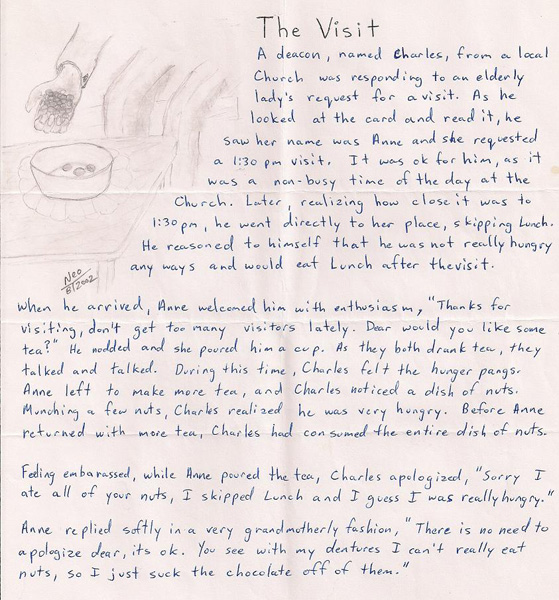 The Visit
A deacon, named Charles, from a local
Church was responding to an elderly
lady's request for a visit. As he
looked at the card and read it, he
saw her name was Anne and she requested
a 1:30 pm visit. It was ok for him, as it
was a non-busy time of the day at the
Church. Later, realizing how close it was to
1:30 pm, he went directly to her place, skipping Lunch.
He reasoned to himself that he was not really hungry
any ways and would eat Lunch after the visit.
Neo
8/2002
When he arrived, Anne welcomed him with enthusiasm, "Thanks for
visiting, don't get too many visitors lately. Dear would you like some
tea?" He nodded and she poured him a cup. As they both drank tea, they
talked and talked. During this time, Charles felt the hunger pangs.
Anne left to make more tea, and Charles noticed a dish of nuts.
Munching a few nuts, Charles realized he was very hungry. Before Anne
returned with more tea, Charles had consumed the entire dish of nuts.
Feeling embarassed, while Anne poured the tea, Charles apologized, "Sorry I
ate all of your nuts, I skipped Lunch and I guess I was really hungry."
Anne replied softly in a very grandmotherly fashion, "There is no need to
apologize dear, its ok. You see with my dentures I can't really eat
nuts, so I just suck the chocolate off of them."